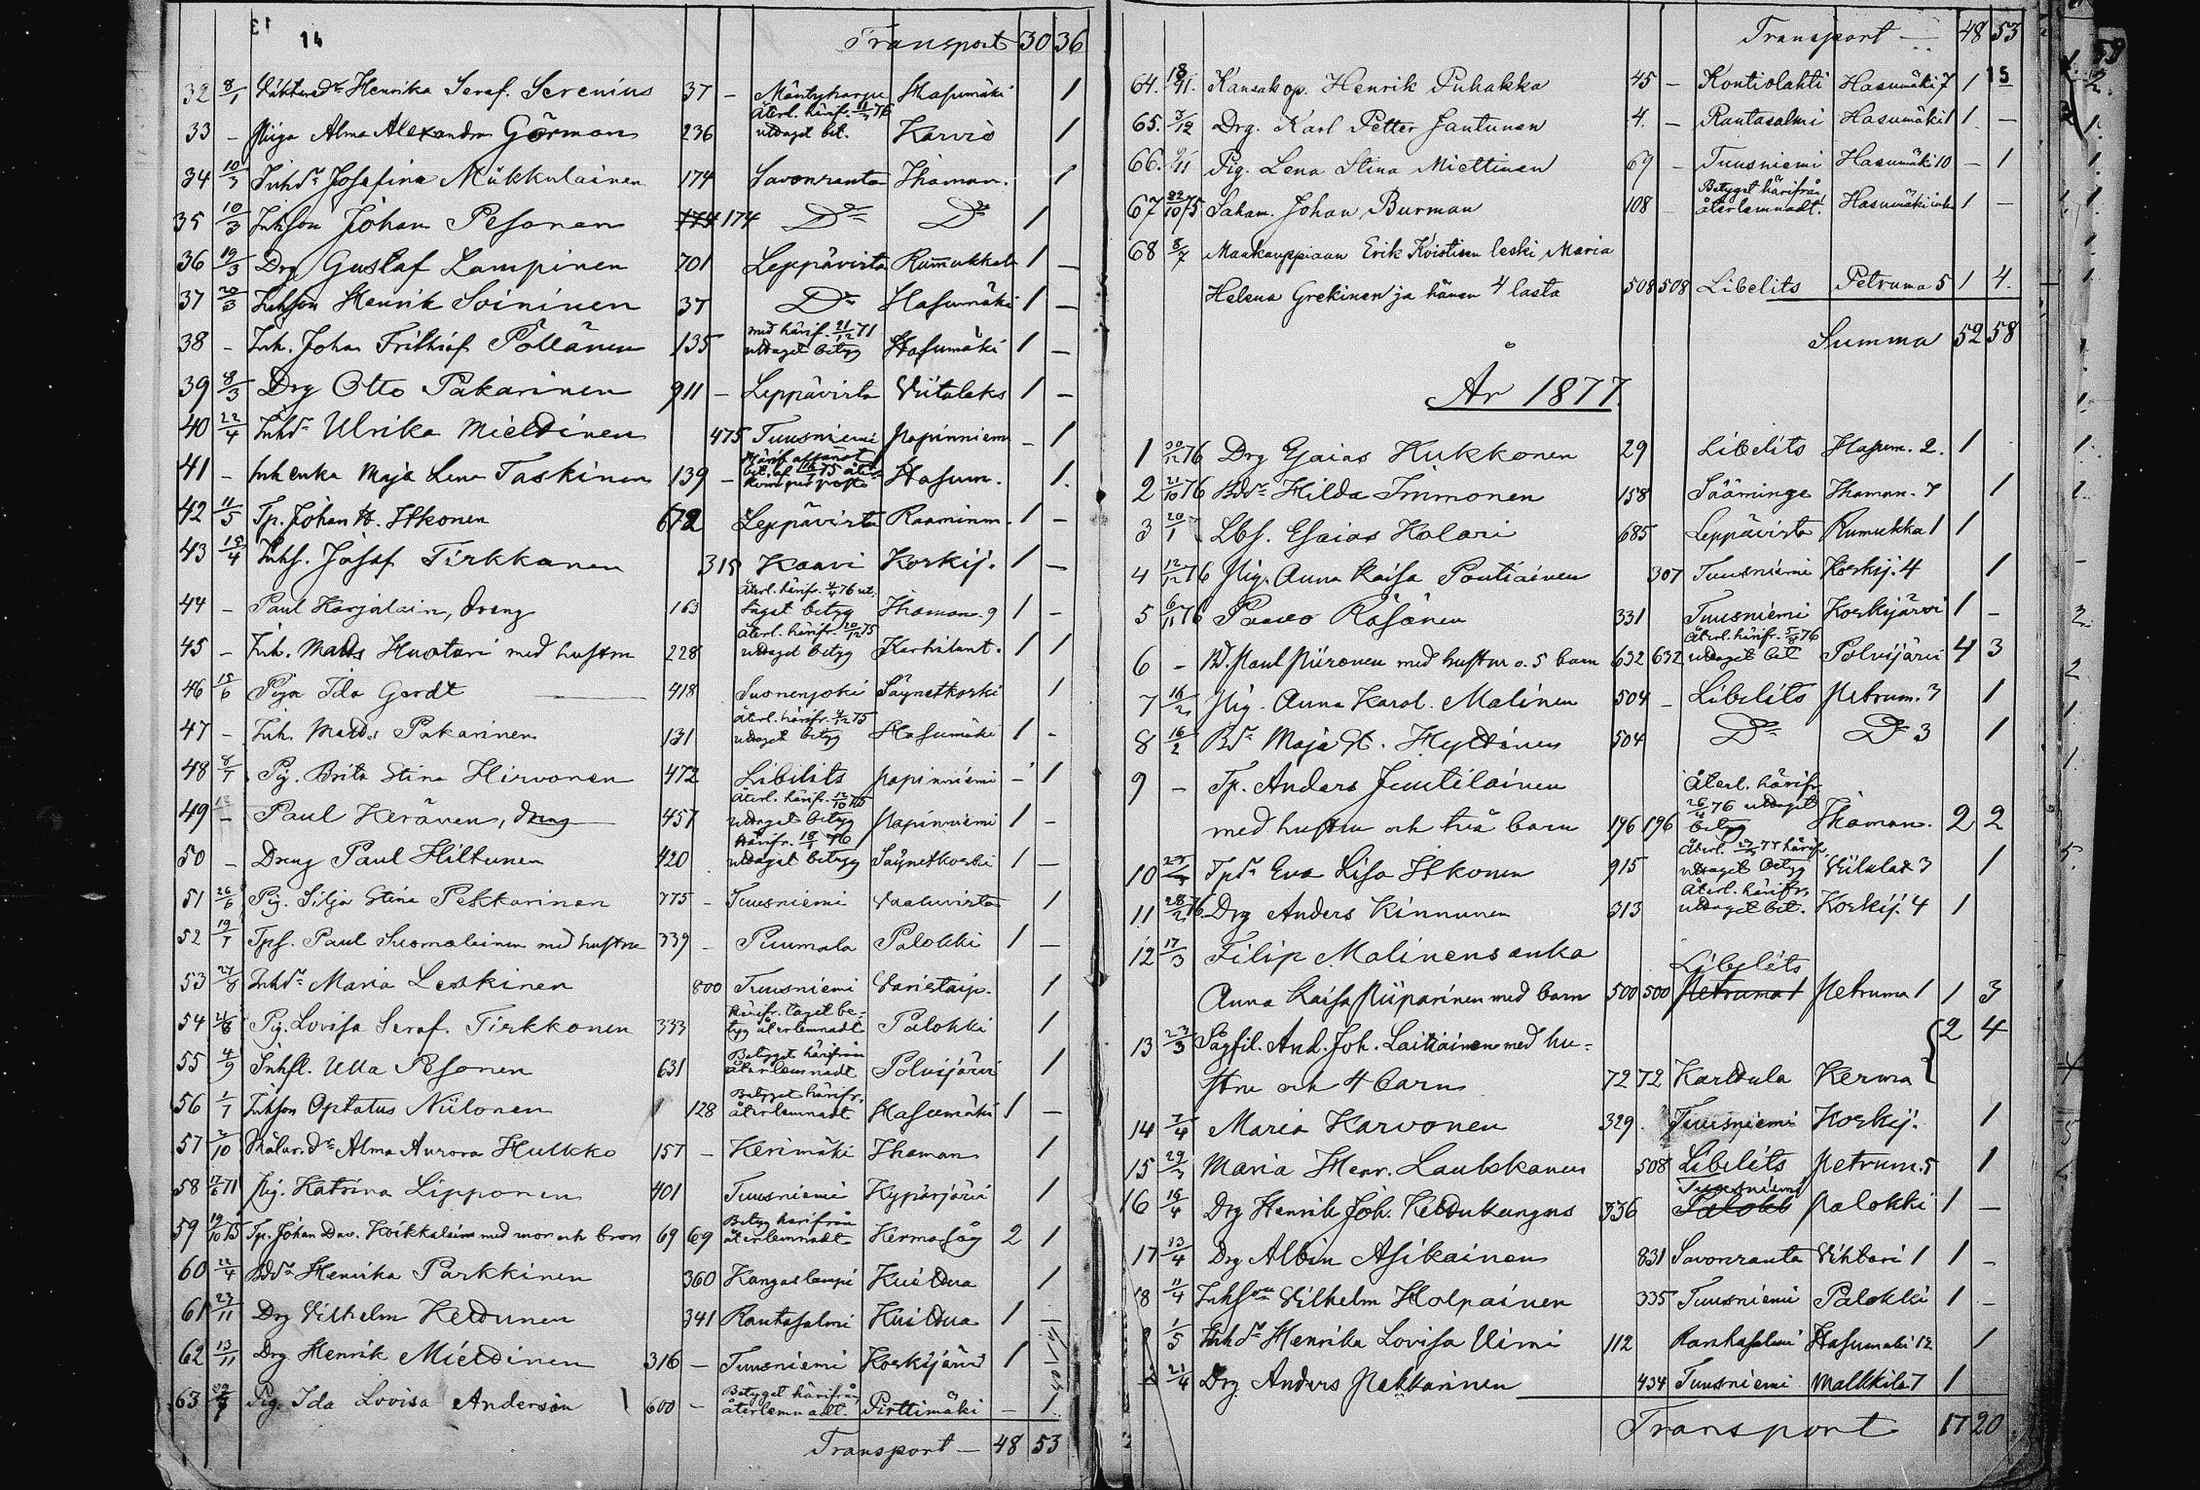 14
Transport 30 36
32 8/1 Henrika Seraf. Serenius 37 - Mäntyharju Hasumäki 1
33 - Piga Alma Alexandra Görman 236 Återl. härif. 11/2 76 uttaget bet. Karvio 1
34 10/3 Inhdr Josefina Mikkulainen 174 Savonranta Ihaman. 1
35 10/3 Inhson Johan Pesonen 174 174 Do Do 1
36 19/3 Drg Gustaf Lampinen 701 Leppävirta Rummukkala 1 -
37 20/3 Inhson Henrik Soininen 37 Do Hasumäki 1 -
38 - Inh. Johan Frithiof Pöllänen 135 med härif. 21/12 71 uttaget betyg Hasumäki 1 -
39 8/3 Drg Otto Pakarinen 911 - Leppävirta Viitalaks 1 -
40 22/4 Inhdr Ulrika Miettinen 475 Tuusniemi Papinniemi - 1
41 - Inh enka Maja Lena Taskinen 139 - Hasum. 1.
42 11/5 Tp. Johan H. Itkonen 672 Leppävirta Raaminm. 1 -
43 15/4 Inhs. Josef Tirkkanen 315 Kaavi Koskij. 1 -
44 - Paul Karjalain, dreng 163 Återl. härifr. 4/4 76 ut. taget betyg Ihaman. 9 1 -
45 - Inh. Matts Huotari med hustru 228 Återl. härifr. 20/12 75 uttaget betyg Karhilant. 1 1
46 15/6 Piga Ida Gerdt 418 Suonenjoki Säynetkoski 1
47 - Inh. Matts Pakarinen 131 Återl. härifr. 4/12 75 uttaget betyg Hasumäki 1 -
48 8/7 Pig. Brita Stina Hirvonen 472 Libelits Papinniemi - 1
49 - Paul Keränen, dreng 457 Återl. härifr. 12/10 75 uttaget betyg Papinniemi 1 -
50 - Dreng Paul Hiltunen 420 Härifr. 18/1 76 uttaget betyg Säynetkoski 1 -
51 26/6 Pig. Silja Stina Pekkarinen 775 - Tuusniemi Vaaluvirta 1
52 19/7 Tps. Paul Suomalainen med hustru 739 - Puumala Palokki 1 -
53 27/8 Inhdr Maria Leskinen 800 Tuusniemi Varistaip. 1
54 21/8 Pig. Lovisa Seraf. Tirkkonen 333 Härifr. taget be- tyg återlemnadt Palokki 1
55 4/9 Inhfl. Ulla Pesonen 631 Betyget härifrån återlemnadt Polvijärvi 1
56 1/7 Inhson Optatus Niilonen 128 Betyget härifr. återlemnadt Hasumäki 1 -
57 2/10 Målar. dr Alma Aurora Hulkko 157 - Kerimäki Ihaman 1
58 12/6 71 Pig. Katrina Lipponen 401 Tuusniemi Kypärjärvi 1
59 19/10 75 Tp. Johan Dav. Koikkalainen med mor och bror 69 69 Betyg härifrån återlemnadt Kerma såg 2 1
60 22/4 Bdr Henrika Parkkinen 360 Kangaslampi Kuittua 1
61 23/11 Drg Vilhelm Kettunen 341 Rantasalmi Kuittua 1 -
62 13/11 Drg Henrik Miettinen 316 - Tuusniemi Koskijärvi 1
63 Pig. Ida Lovisa Anderson 600 - Betyget härifrån återlemnadt. Pirttimäki - 1.
Transport - 48 53
Transport - 48 53
15
64. 18/11. Kansak op. Henrik Puhakka 45 - Kontiolahti Hasumäki 7 1
65. 3/12 Drg. Karl Petter Jantunen 4. - Rantasalmi Hasumäki 1 1 -
66. 9/11 Pig. Lena Stina Miettinen 69 - Tuusniemi Hasumäki 10 - 1
67 22/10 75 Saham. Johan Burman 108 Betyget härifrån återlemnadt. Hasumäki 1 -
68 8/7 Maakauppiaan Erik Kvistisen leski Maria
Helena Grekinen ja hänen 4 lasta 508 508 Libelits Petruma 5 1 4.
Summa 52 58
År 1877.
1 20/12 76 Drg Esaias Kukkonen 29 Libelits Hasum. 2. 1
2 21/10 76 Bdr Hilda Immonen 158 Sääminge Ihaman. 7 1
3 20/1 Lbs. Esaias Holari 685 Leppävirta Rumukka 1 1
4 12/12 76 Pig. Anna Kaisa Pontiainen 307 Tuusniemi Koskij. 4 1
5 6/11 76 Paavo Räsänen 331 Tuusniemi Koskijärvi 1 -
6 - Bd. Paul Piironen med hustru o. 5 barn 632 632 Återl. härifr. 5/8 76 uttaget bet Polvijärvi 4 3
7 16/2 Pig. Anna Karol. Malinen 504 - Libelits Petrum. 3 1
8 16/2 Bdr Maja St. Hyttinen 504 Do Do 3 1
9 - Tp. Anders Juutilainen Återl. härifr
med hustru och två barn 196 196 26/4 76 uttaget betyg Ihaman. 2 2
10 Tpdr Eva Lisa Itkonen 915 Återl. 77 härifr. uttaget betyg Viitalax 3 1
11 28/2 76 Drg Anders Kinnunen 313 Återl. härifrån uttaget bet. Koskij. 4 1
12 17/3 Filip Malinens enka
Libelits
Anna Kaisa Piiparinen med barn 500 500 Petruma 1 Petruma 1 1 3
13 27/3 Sågfil. And. Joh. Laitiainen med hu-
stru och 4 barn 72 72 Karttula Kerma 2 4
14 7/4 Maria Karvonen 329. Tuusniemi Koskij. 1
15 29/3 Maria Henr. Laukkanen 508 Libelits Petrum. 5 1
Tuusniemi
16 18/4 Drg Henrik Joh. Kettukangas 336 Palokki Palokki 1 -
17 13/4 Drg Albin Asikainen 831 Savonranta Vihtari 1 1 -
18 11/4 Inhson Vilhelm Holpainen 335 Tuusniemi Palokki 1 -
1/5 Inhdr Henrika Lovisa Uimi 112 Rantasalmi Hasumäki 12 1
21/4 Drg Anders Pekkarinen 434 Tuusniemi Malkkila 7 1
Transport 17 20